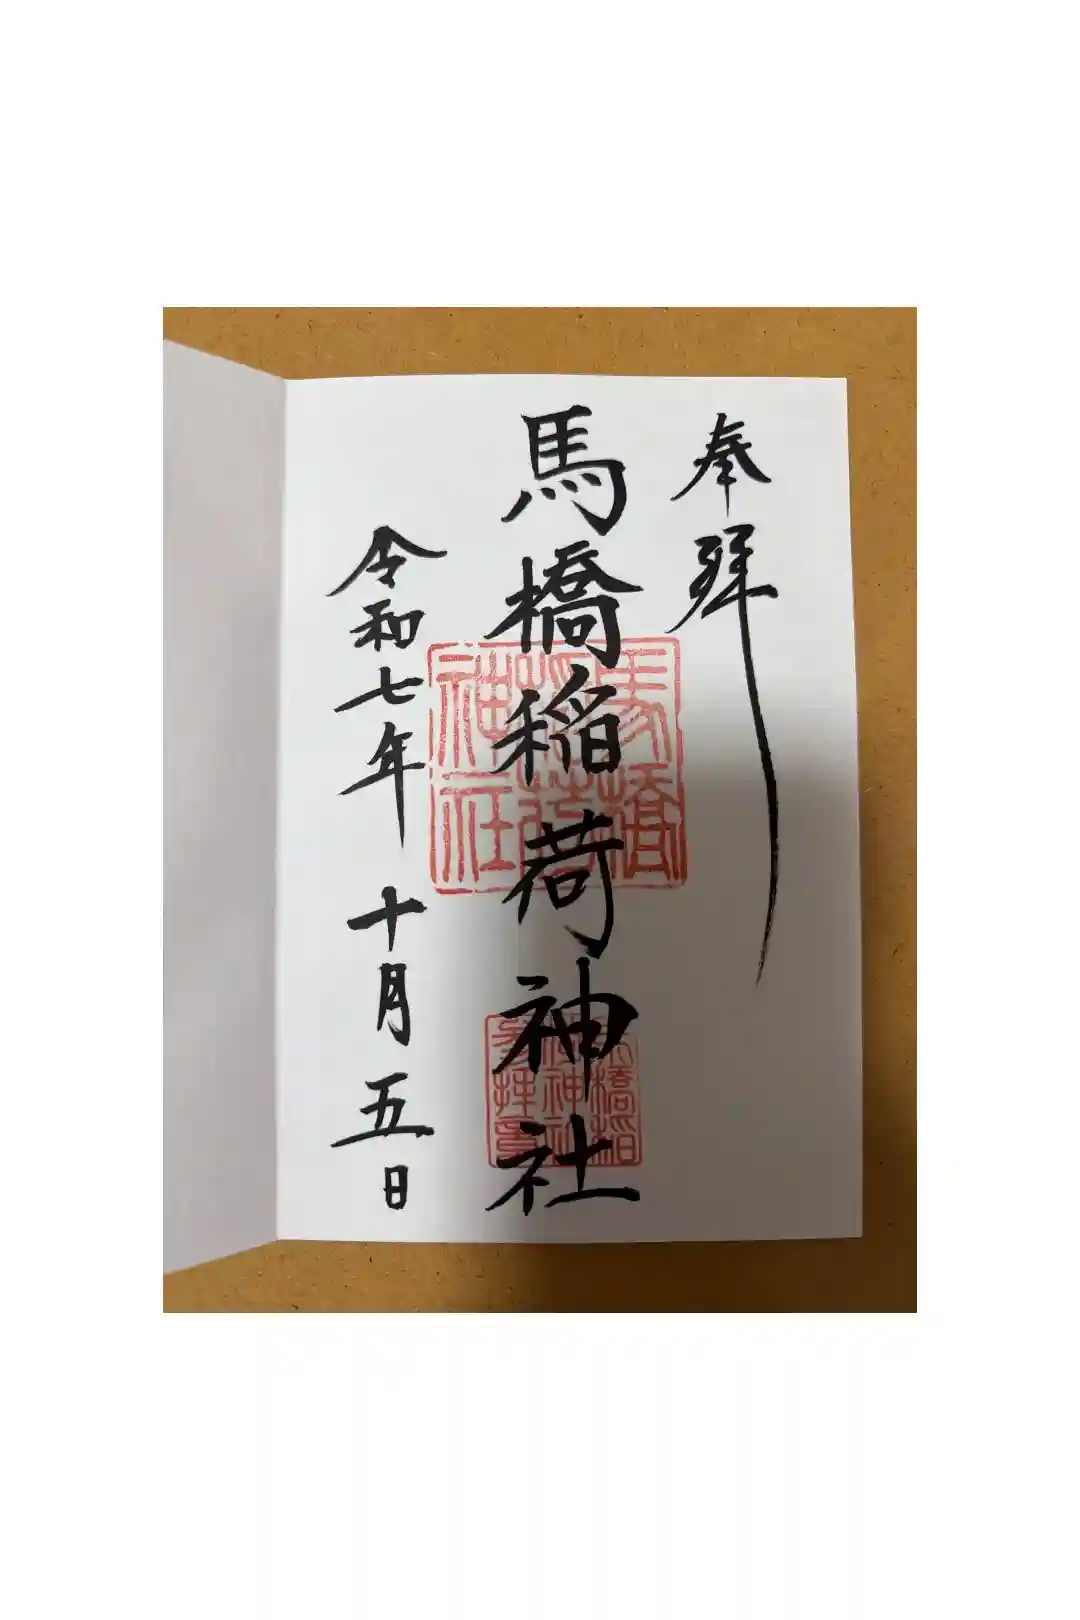 奉拝
馬橋稲荷神社
令和七年十月五日
馬橋
稲荷
神社
馬橋稲
荷神社
参拝章